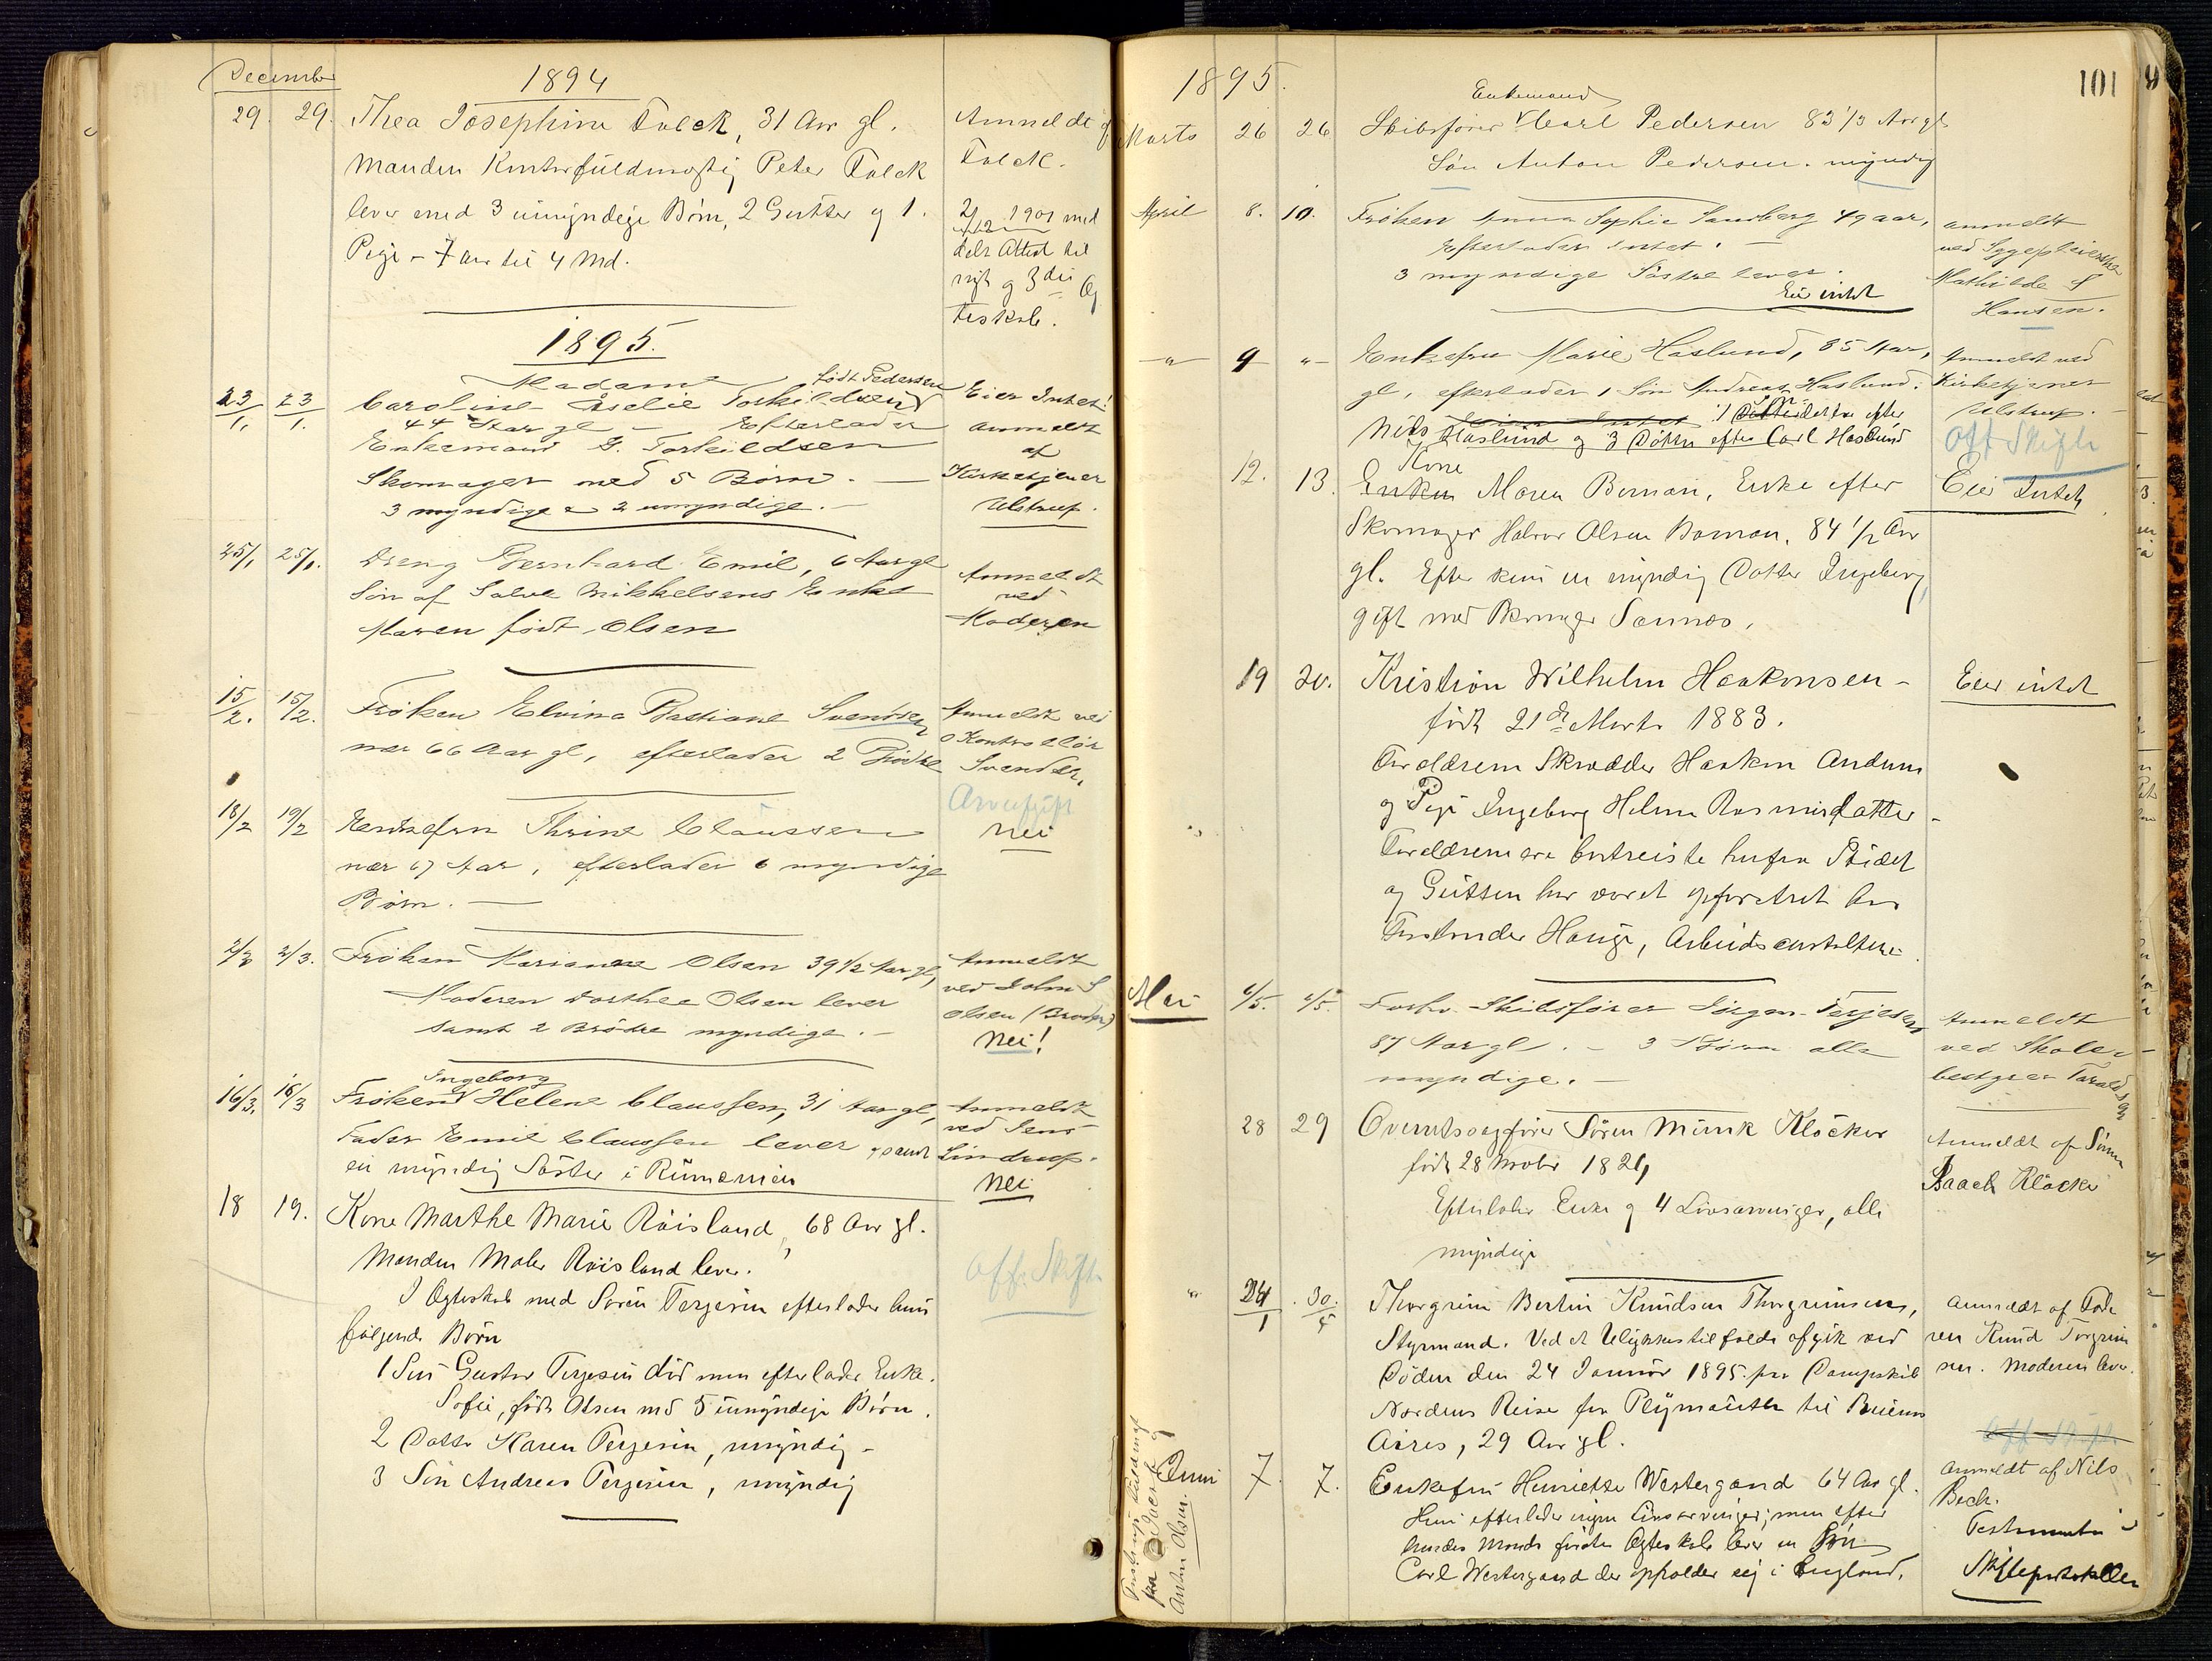 December
1894
29. 29. Thea Josephine Falck, 31 Aar gl. Anmeldt af
Manden Kontorfuldmægtig Peter Falck Falck.
lever med 3 umyndige Børn, 2 Gutter og 1.
Pige - 7 Aar til 4 Md.
2/12 1901 med
delt Attest til
nyt og 3die Æg
teskab.
1895.
Madame født Pedersen
23/1, 23/1. Caroline Aselie Torkildsen Eier Intet!
44 Aar gl - Efterlader anmeldt
Enkemand G. Torkildsen af
Skomager med 5 Børn. — Kirketjener
3 myndige & 2 umyndige. - Ulstrup.
25/1 25/1. Dreng Bernhard Emil, 6 Aar gl Anmeldt
Søn af Salve Mikkelsens Enke ved
Maren født Olsen Moderen
15/2. 15/2. Frøken Elvina Bastiane Svendsen Anmeldt ved
nær 66 Aar gl, efterlader 2 Brødre Kontrollør
Svendsen.
Arveafgift
18/2 19/2 Enkefru Thrine Claussen nei
nær 67 Aar, efterlader 6 myndige
Børn. —
2/3 2/3. Frøken Marianne Olsen 39 1/2 Aar gl, Anmeldt
Moderen Dorthea Olsen lever ved John S
samt 2 Brödre myndige. - Olsen (Broder)
Nei!
Ingeborg
16/3. 16/3 Frøken Helene Claussen, 31 Aar gl, Anmeldt
Fader Emil Claussen lever, samt ved Jens
en myndig Søster i Rumænien Lindrup.
Nei
18 19. Kone Marthe Marie Röisland, 68 Aar gl.
Manden Maler Röisland lever.
off. Skifte
I Ægteskab med Sören Terjesen efterlader hun
følgende Børn
1 Søn Gustav Terjesen död men efterlader Enke
Sofie, født Olsen med 5 umyndige Børn.
2 Datter Karen Terjesen, myndig -
3 Søn Andreas Terjesen, myndig
101
1895.
Enkemand
Marts 26 26 Skibsfører Carl Pedersen 83 1/3 Aar gl
Søn Anton Pedersen. myndig
April 8. 10. Frøken Anna Sophie Sandberg 49 aar, anmeldt
Efterlader Intet. - ved Sygepleierske
3 myndige Söstre lever. Mathilde S
Eier intet Hansen.
" 9 " Enkefru Marie Haslund, 85 Aar, Anmeldt ved
gl, efterlader 1 Søn Andreas Haslund. Kirketjener
Ulstrup.
Nils Haslund og 3 Döttre efter Carl Haslund off Skifte
Kone
12. 13. Enken Maren Boman, Enke efter Eier Intet
Skomager Halvor Olsen Boman. 84 1/2 Aar
gl. Efter kun en myndig Datter Ingeborg,
gift med Skomager Sannæs.
19 20. Kristian Wilhelm Haakonsen - Eier intet
født 21de Marts 1883.
Forældrene Skrædder Haakon Andersen
og Pige Ingeborg Helene Rasmusdatter -
Forældrene ere bortreiste herfra Stedet
og Gutten har været opfostret hos
Hauge, Arbeidsanstalten.
Mai 4/5. 4/5. Forhv. Skibsfører Jörgen Terjesen Anmeldt
87 Aar gl. - 3 Börn alle ved Skole-
myndige. - bestyrer Taraldsen
28 29 Overretssagfører Sören Munk Klöcker Anmeldt af Sönnen
født 28 1824 Isaach Klöcker
Efterlader Enke og 4 Livsarvinger, alle
myndige
" 24/1 30/5 Thorgrim Bertin Knudsen Thorgrimsen, anmeldt af Fade
Styrmand. Ved et Ulykkestilfælde afgik ved ren Knud Torgrim
Döden den 24 Januar 1895 paa Dampskib sen. Moderen lever.
Nordens Reise fra Plymouth til Buenos
Aires, 29 Aar gl.
off Skifte
Juni 7. 7. Enkefru Henriette Westergaard 64 Aar gl. anmeldt af Nils
Hun efterlader ingen Livsarvinger; men efter Bech.
hendes Mands første Ægteskab lever en Søn Testamente i
Carl Westergaard der opholder sig i England. Skifteprotokollen
Anton Olsen.